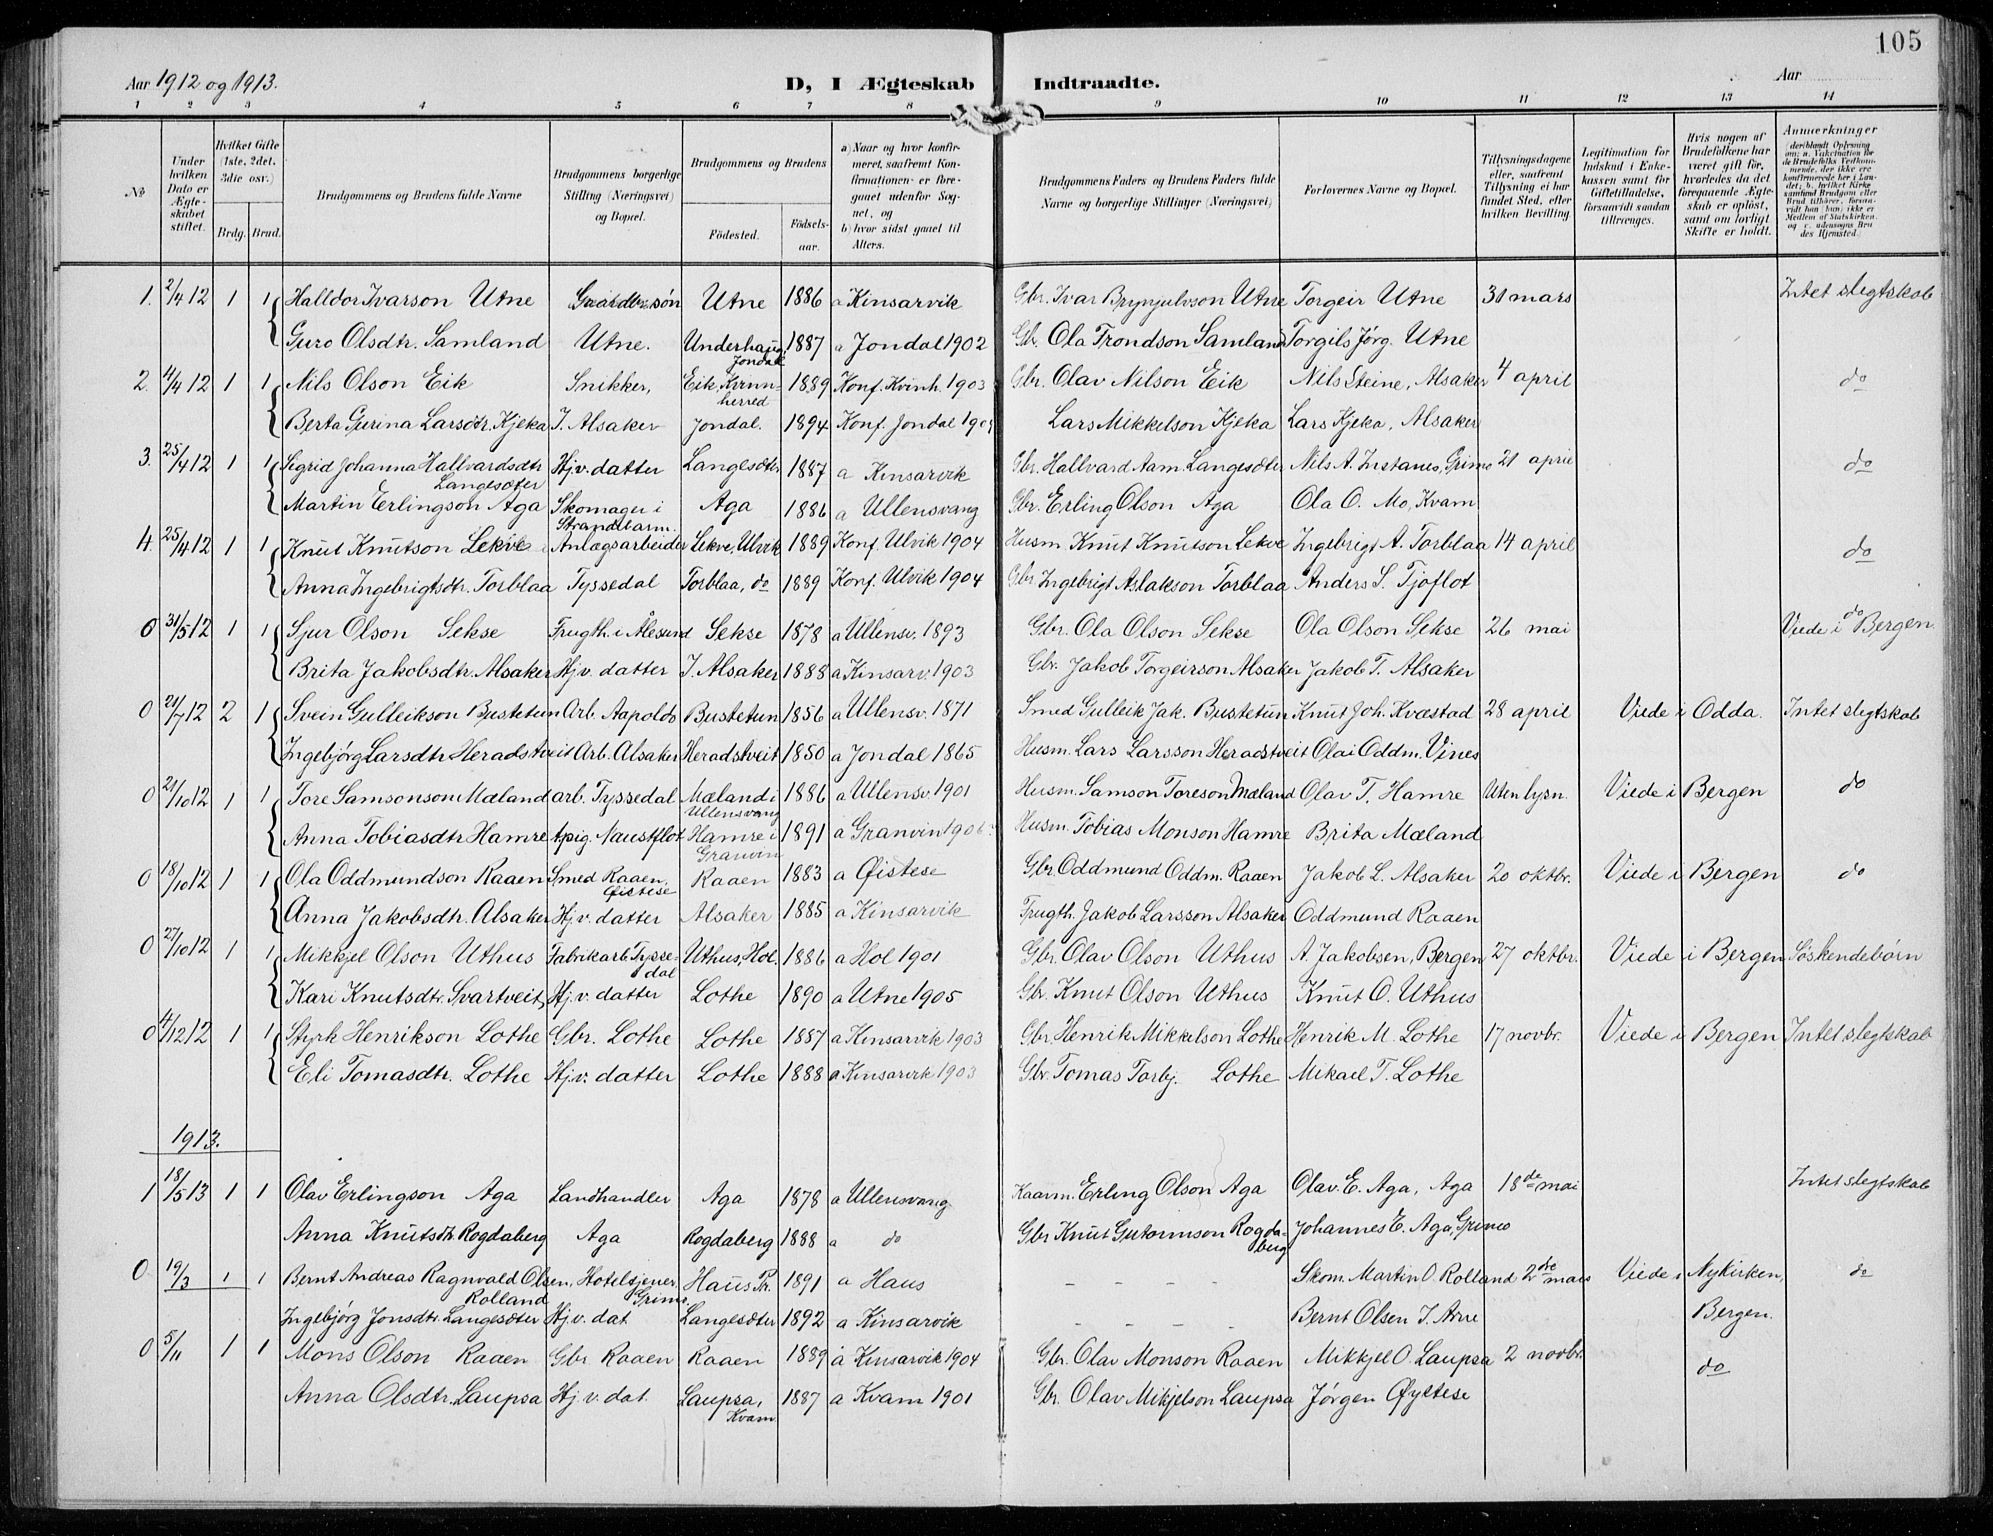 105
Aar 1912 og 1913. D, I Ægteskab Indtraadte. Aar
1 2 3 4 5 6 7 8 9 10 11 12 13 14
No
Under hvilken Dato er Ægteskabet stiftet.
Hvilket Gifte (1ste, 2det, 3die osv.)
Brdg. Brud.
Brudgommens og Brudens fulde Navne
Brudgommens borgerlige Stilling (Næringsvei) og Bopæl.
Brudgommens og Brudens
Födested. Födselsaar.
a) Naar og hvor konfirmeret, saafremt Konfirmationen er foregaaet udenfor Sognet, og
b) hvor sidst gaaet til Alters.
Brudgommens Faders og Brudens Faders fulde Navne og borgerlige Stillinger (Næringsvei)
Forlovernes Navne og Bopæl.
Tillysningsdagene eller, saafremt Tillysning ei har fundet Sted, efter hvilken Bevilling.
Legitimation for Indskud i Enkekassen samt for Giftetilladelse, forsaavidt saadan tiltrænges.
Hvis nogen af Brudefolkene har været gift för, hvorledes da det foregaaende Ægteskab er oplöst, samt om lovligt Skifte er holdt.
Anmerkninger (deriblandt Oplysning om: a. Vaksination for de Brudefolks Vedkommende, der ikke ere konfirmerede her i Landet; b. hvilket Kirkesamfund Brudgom eller Brud tilhörer, forsaavidt han (hun) ikke er Medlem af Statskirken, og c. udensogns Brudes Hjemsted.)
1. 2/4 12 1 1 Halldor Ivarson Utne Gaardbr.søn Utne 1886 a Kinsarvik Gbr. Ivar Brynjulvson Utne Torgeir Utne 31 mars Intet slegtskab
Guro Olsdtr. Samland Utne. Underhaug, Jondal 1887 a Jondal 1902 Gbr. Ola Trondson Samland Torgils Jørg. Utne
2. 4/4 12 1 1 Nils Olson Eik Snikker, Eik, Kvinnherred 1889 Konf. Kvinh. 1903 Gbr. Olav Nilson Eik Nils Steine, Alsaker 4 april do
Berta Gurina Larsdtr. Kjeka I. Alsaker Jondal. 1894 Konf. Jondal Lars Mikkelson Kjeka Lars Kjeka, Alsaker
3. 25/4 12 1 1 Sigrid Johanna Hallvardsdtr Langesæter Hj.v. datter Langesæter 1887 a Kinsarvik Gbr. Hallvard Aam. Langesæter Nils A. Instanes, Grimo 21 april do
Martin Erlingson Aga Skomager i Strandebarm. Aga 1886 a Ullensvang Gbr. Erling Olson Aga Ola O. Mo, Kvam
4. 25/4 12 1 1 Knut Knutson Lekve Anlægsarbeider Lekve, Ulvik 1889 Konf. Ulvik 1904 Husm. Knut Knutson Lekve Ingebrigt A. Torblaa 14 april do
Anna Ingebrigtsdtr. Torblaa Tyssedal Torblaa, do 1889 Konf. Ulvik 1904 Gbr Ingebrigt Aslakson Torblaa Anders S. Tjoflot
0 31/5 12 1 1 Sjur Olson Sekse Frugth. i Ålesund Sekse 1878 a Ullensv. 1893 Gbr. Ola Olson Sekse Ola Olson Sekse 26 mai do Viede i Bergen.
Brita Jakobsdtr. Alsaker Hj.v. datter I. Alsaker 1888 a Kinsarv. 1903 Gbr. Jakob Torgeirson Alsaker Jakob T. Alsaker
0 21/7 12 2 1 Svein Gulleikson Bustetun Arb. Aapolds Bustetun 1856 a Ullensv. 1871 Smed Gulleik Jak. Bustetun Knut Joh. Kvæstad 28 april Viede i Odda. Intet slegtskab
Ingebjørg Larsdtr Heradstveit Arb. Alsaker Heradstveit 1850 a Jondal 1865 Husm. Lars Larsson Heradstveit Olai Oddm. Vines
0 21/10 12 1 1 Tore Samsonson Mæland arb. Tyssedal Mæland i Ullensvang 1886 a Ullensv. 1901 Husm. Samson Toreson Mæland Olav T. Hamre Uten lysn. Viede i Bergen do
Anna Tobiasdtr Hamre Apig. Naustflot Hamre i Granvin 1891 a Granvin 1906 Husm. Tobias Monson Hamre Brita Mæland
0 18/10 12 1 1 Ola Oddmundson Raaen Smed Raaen, Øistese Raaen 1883 a Øistese Gbr. Oddmund Oddm. Raaen Jakob L. Alsaker 20 oktbr. Viede i Bergen do
Anna Jakobsdtr. Alsaker Hj.v. datter Alsaker 1885 a Kinsarvik Frugth. Jakob Larsson Alsaker Oddmund Raaen
0 27/10 12 1 1 Mikkjel Olson Uthus Fabrikarb. Tyssedal Uthus, Hol. 1886 a Hol 1901 Gbr. Olav Olson Uthus A. Jakobsen, Bergen 27 oktbr. Viede i Bergen Søskendebørn
Kari Knutsdtr. Svartveit, Hj.v. datter Lothe 1890 a Utne 1905 Gbr. Knut Olson Uthus Knut O. Uthus
0 4/12 12 1 1 Styrk Henrikson Lothe Gbr. Lothe Lothe 1887 a Kinsarvik 1903 Gbr Henrik Mikkelson Lothe Henrik M. Lothe 17 novbr. Viede i Bergen Intet slegtskab
Eli Tomasdtr. Lothe Hj.v. datter Lothe 1888 a Kinsarvik 1903 Gbr. Tomas Torbj. Lothe Mikael T. Lothe
1913.
1 18/5 13 1 1 Olav Erlingson Aga Landhandler Aga 1878 a Ullensvang Kaarm. Erling Olson Aga Olav. E. Aga, Aga 18de mai Intet slegtskab
Anna Knutsdtr Rogdaberg Aga Rogdaberg 1888 a do Gbr Knut Gutormson Rogdaberg Johannes E. Aga, Grimo
0 19/3 1 1 Bernt Andreas Ragnvald Olsen Rolland Hoteltjener Grimo. Haus Pr. 1891 a Haus – – – – Skom. Martin O. Rolland 2de mars Viede i Nykirken, do
Ingebjørg Jonsdtr. Langesæter Hj.v. dat Langesæter 1892 a Kinsarvik – – – – Bernt Olsen I. Arne Bergen.
0 5/11 1 1 Mons Olson Raaen Gbr Raaen Raaen 1889 a Kinsarvik 1904 Gbr. Olav Monson Raaen Mikkjel O. Laupsa 2 novbr. do
Anna Olsdtr. Laupsa Hj.v. dat. Laupsa, Kvam 1887 a Kvam 1901 Gbr. Olav Mikjelson Laupsa Jørgen Øystese